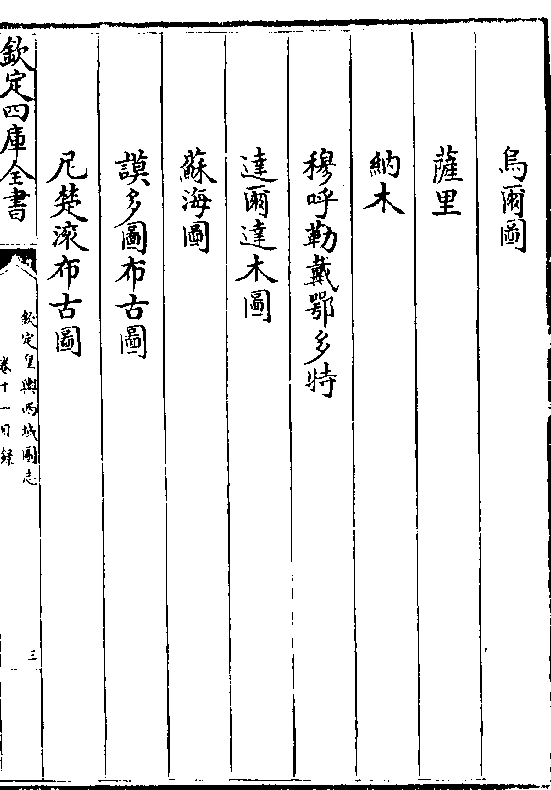 烏爾圖
薩里
納木
穆呼勒戴鄂多特
達爾達木圖
蘇海圖
謨多圖布古圖
尼楚滚布古圖
欽定四庫全書
欽定皇輿西域圖志
卷十一目録
三